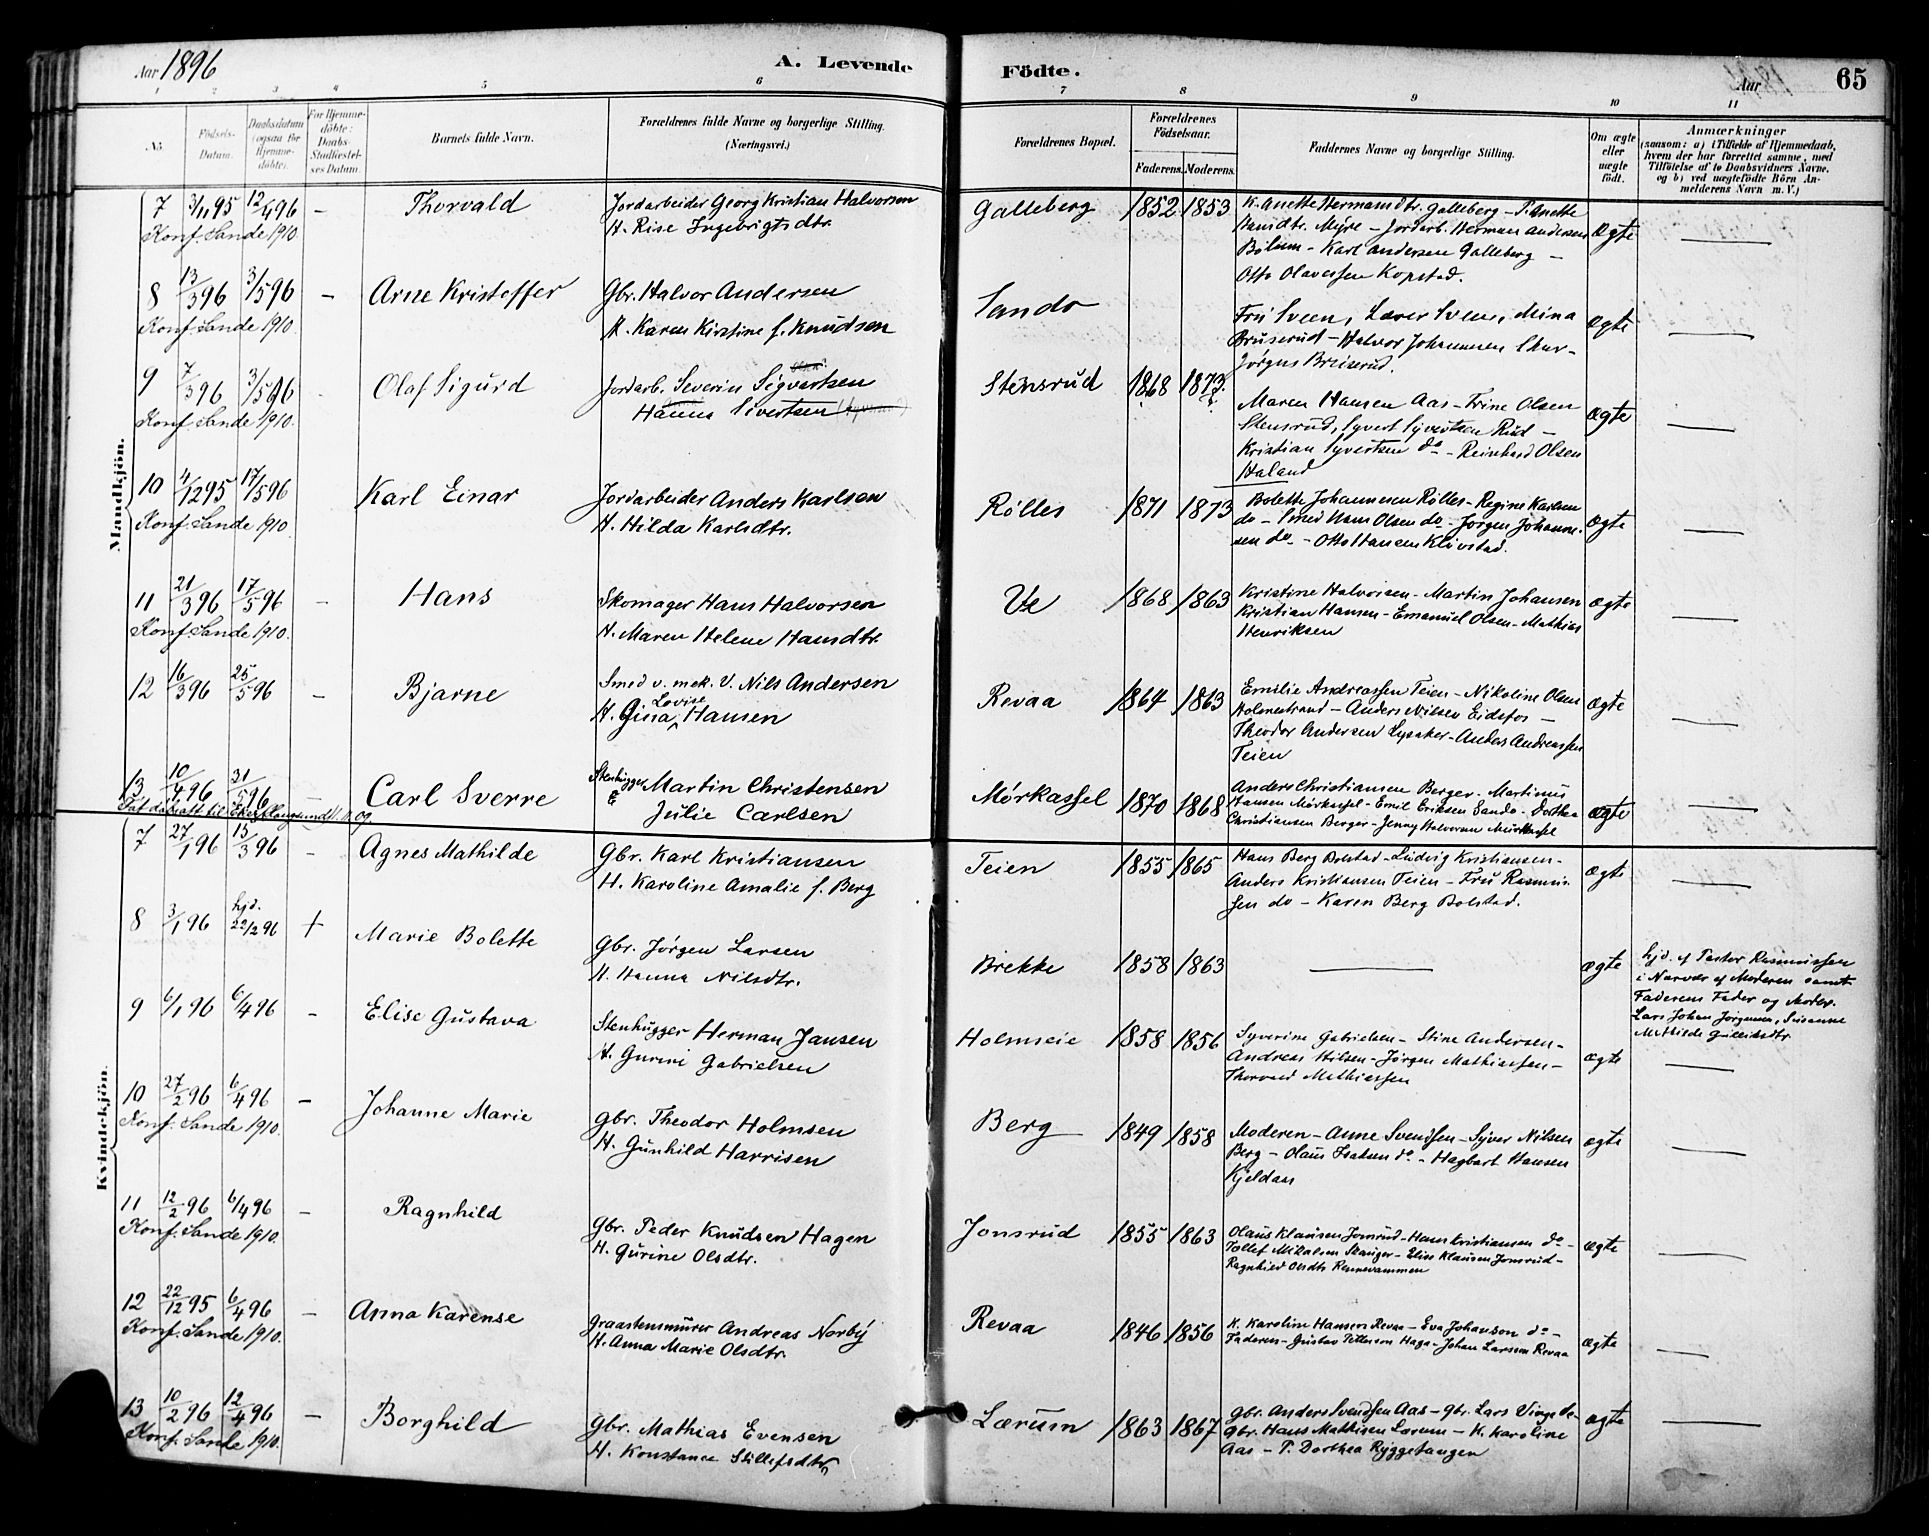 Aar 1896
A. Levende
Födte.
Aar
65
1 2 3 4 5 6 7 8 9 10 11
No.
Födsels-Datum.
Daabsdatum (ogsaa for Hjemme-döbte).
For Hjemme-döbte: Daabs-Stadfæstel-ses Datum.
Barnets fulde Navn.
Forældrenes fulde Navne og borgerlige Stilling. (Næringsvei.)
Forældrenes Bopæl.
Forældrenes Födselsaar.
Faderens. Moderens.
Faddernes Navne og borgerlige Stilling.
Om ægte eller uægte födt.
Anmærkninger
(saasom: a) i Tilfælde af Hjemmedaab,
hvem der har forrettet samme, med
Tilföielse af to Daabsvidners Navne.
og b) ved uægtefödte Börn An-
melderens Navn m. V.)
Mandkjön.
7 3/11 95 12/4 96 – Thorvald
Jordarbeider Georg Kristian Halvorsen
H. Rise Ingebrigtsdtr.
Galleberg 1852 1853
K. Anette Hermansdtr. Galleberg – P. Anette
Hansdtr. Myre – Jordarb. Herman Andersen
Bolum – Karl Andersen Galleberg –
Otto Olavessen Kopstad.
ægte —
Konf. Sande 1910.
8 13/3 96 3/5 96 – Arne Kristoffer
Gbr. Halvor Andersen
H. Karen Kirstine f. Knudsen
Sando
Fru Sveen, Lærer Sveen, Mina
Bruserud – Halvor Johannesen
Jørgen Bruserud.
ægte —
Konf. Sande 1910.
9 7/3 96 3/5 96 Olaf Sigurd
Jordarb. Severin Sigvertsen
Hanna Sivertsen
Stensrud 1868 1873.
Maren Hansen Aas – Trine Olsen
Stensrud, Syvert Syvertsen Rud –
Kristian Syvertsen do – Reinhard Olsen
Haland
ægte —
Konf. Sande 1910.
10 4/12 95 17/5 96 Karl Einar
Jordarbeider Anders Karlsen
H. Hilda Karlsdtr.
Rølles 1871 1873
Bolette Johannesen Rølles – Regine Karlsen
do – Smed Hans Olsen do – Jørgen Johanne-
sen do – Otto Hansen Klivstad.
ægte —
Konf. Sande 1910.
11 21/3 96 17/5 96 – Hans
Skomager Hans Halvorsen
H. Maren Helene Hansdtr.
Ve 1868 1863
Kristine Halvorsen – Martin Johansen
Kristian Hansen – Emanuel Olsen – Mathias
Henriksen
ægte —
Konf. Sande 1910.
12 16/3 96 25/5 96 – Bjarne
Smed v. mek. V. Nils Andersen
Lovise
H. Gina Hansen
Revaa 1864 1863
Emilie Andreassen Teien – Nikoline Olsen
Holmestrand – Anders Nilsen Eidsfos –
Theodor Andersen Lysaker – Anders Andreassen
Teien
ægte —
13 10/4 96 31/5 96 Carl Sverre
Stenhugger Martin Christensen
E Julie Carlsen
Mørkassel 1870 1868
Anders Christiansen Berger. Martinus
Hansen Mørkassel – Emil Eriksen Sando – Dorthea
Christiansen Berger – Jenny Halvorsen Mørkassel
ægte —
Kvindekjön.
7 27/1 96 15/3 96 – Agnes Mathilde
Gbr. Karl Kristiansen
H. Karoline Amalie f. Berg
Teien 1855 1865
Hans Berg Bolstad – Ludvig Kristiansen –
Anders Kristiansen Teien – Fru Rasmus-
sen do – Karen Berg Bolstad.
ægte —
8 3/1 96 hjd. 22/2 96 + Marie Bolette
Gbr. Jørgen Larsen
H. Hanna Nilsdtr.
Brekke 1858 1863 —
ægte
hjd. af Pastor Rasmussen
i Nærvær af Moderen samt
Faderens Fader og Moder.
Lars Johan Jørgensen, Susanne
Mathilde Gulliksdtr.
9 6/1 96 6/4 96 – Elise Gustava
Stenhugger Herman Jansen
H. Gurini Gabrielsen
Holmseie 1858 1856
Syverine Gabrielsen – Stine Andersen –
Andreas Nilsen – Jørgen Mathiassen –
Thorvald Mathiassen
ægte —
10 27/2 96 6/4 96 – Johanne Marie
Gbr. Theodor Holmsen
H. Gunhild Harrisen
Berg 1849 1858
Moderen – Anne Svendsen – Syver Nilsen
Berg – Olaus Isaksen do – Hagbart Hansen
Kjeldaas
ægte —
Konf. Sande 1910.
11 12/2 96 6/4 96 – Ragnhild
Gbr. Peder Knudsen Hagen
H. Gurine Olsdtr.
Jonsrud 1855 1863
Olaus Klausen Jonsrud – Hans Kristiansen do –
Tollef Mikalsen Skanger – Elise Klausen Jonsrud –
Ragnhild Olsdtr Rennevammen
ægte —
Konf. Sande 1910.
12 22/12 95 6/4 96 – Anna Karense
Graastensmurer Andreas Norby
H. Anna Marie Olsdtr.
Revaa 1846 1856
K. Karoline Hansen Revaa – Eva Johanson do –
Faderen – Gustav Pettersen Haga – Johan Larssen Revaa
ægte —
Konf. Sande 1910.
13 10/2 96 12/4 96 – Borghild
Gbr. Mathias Evensen
H. Konstance Stillefsdtr.
Lærum 1863 1867
Gbr. Anders Svendsen Aas – Gbr. Lars Vinge do –
Gbr. Hans Mathisen Lærum – K. Karoline
Aas – P. Dorthea Ryggetangen
ægte —
Konf. Sande 1910.